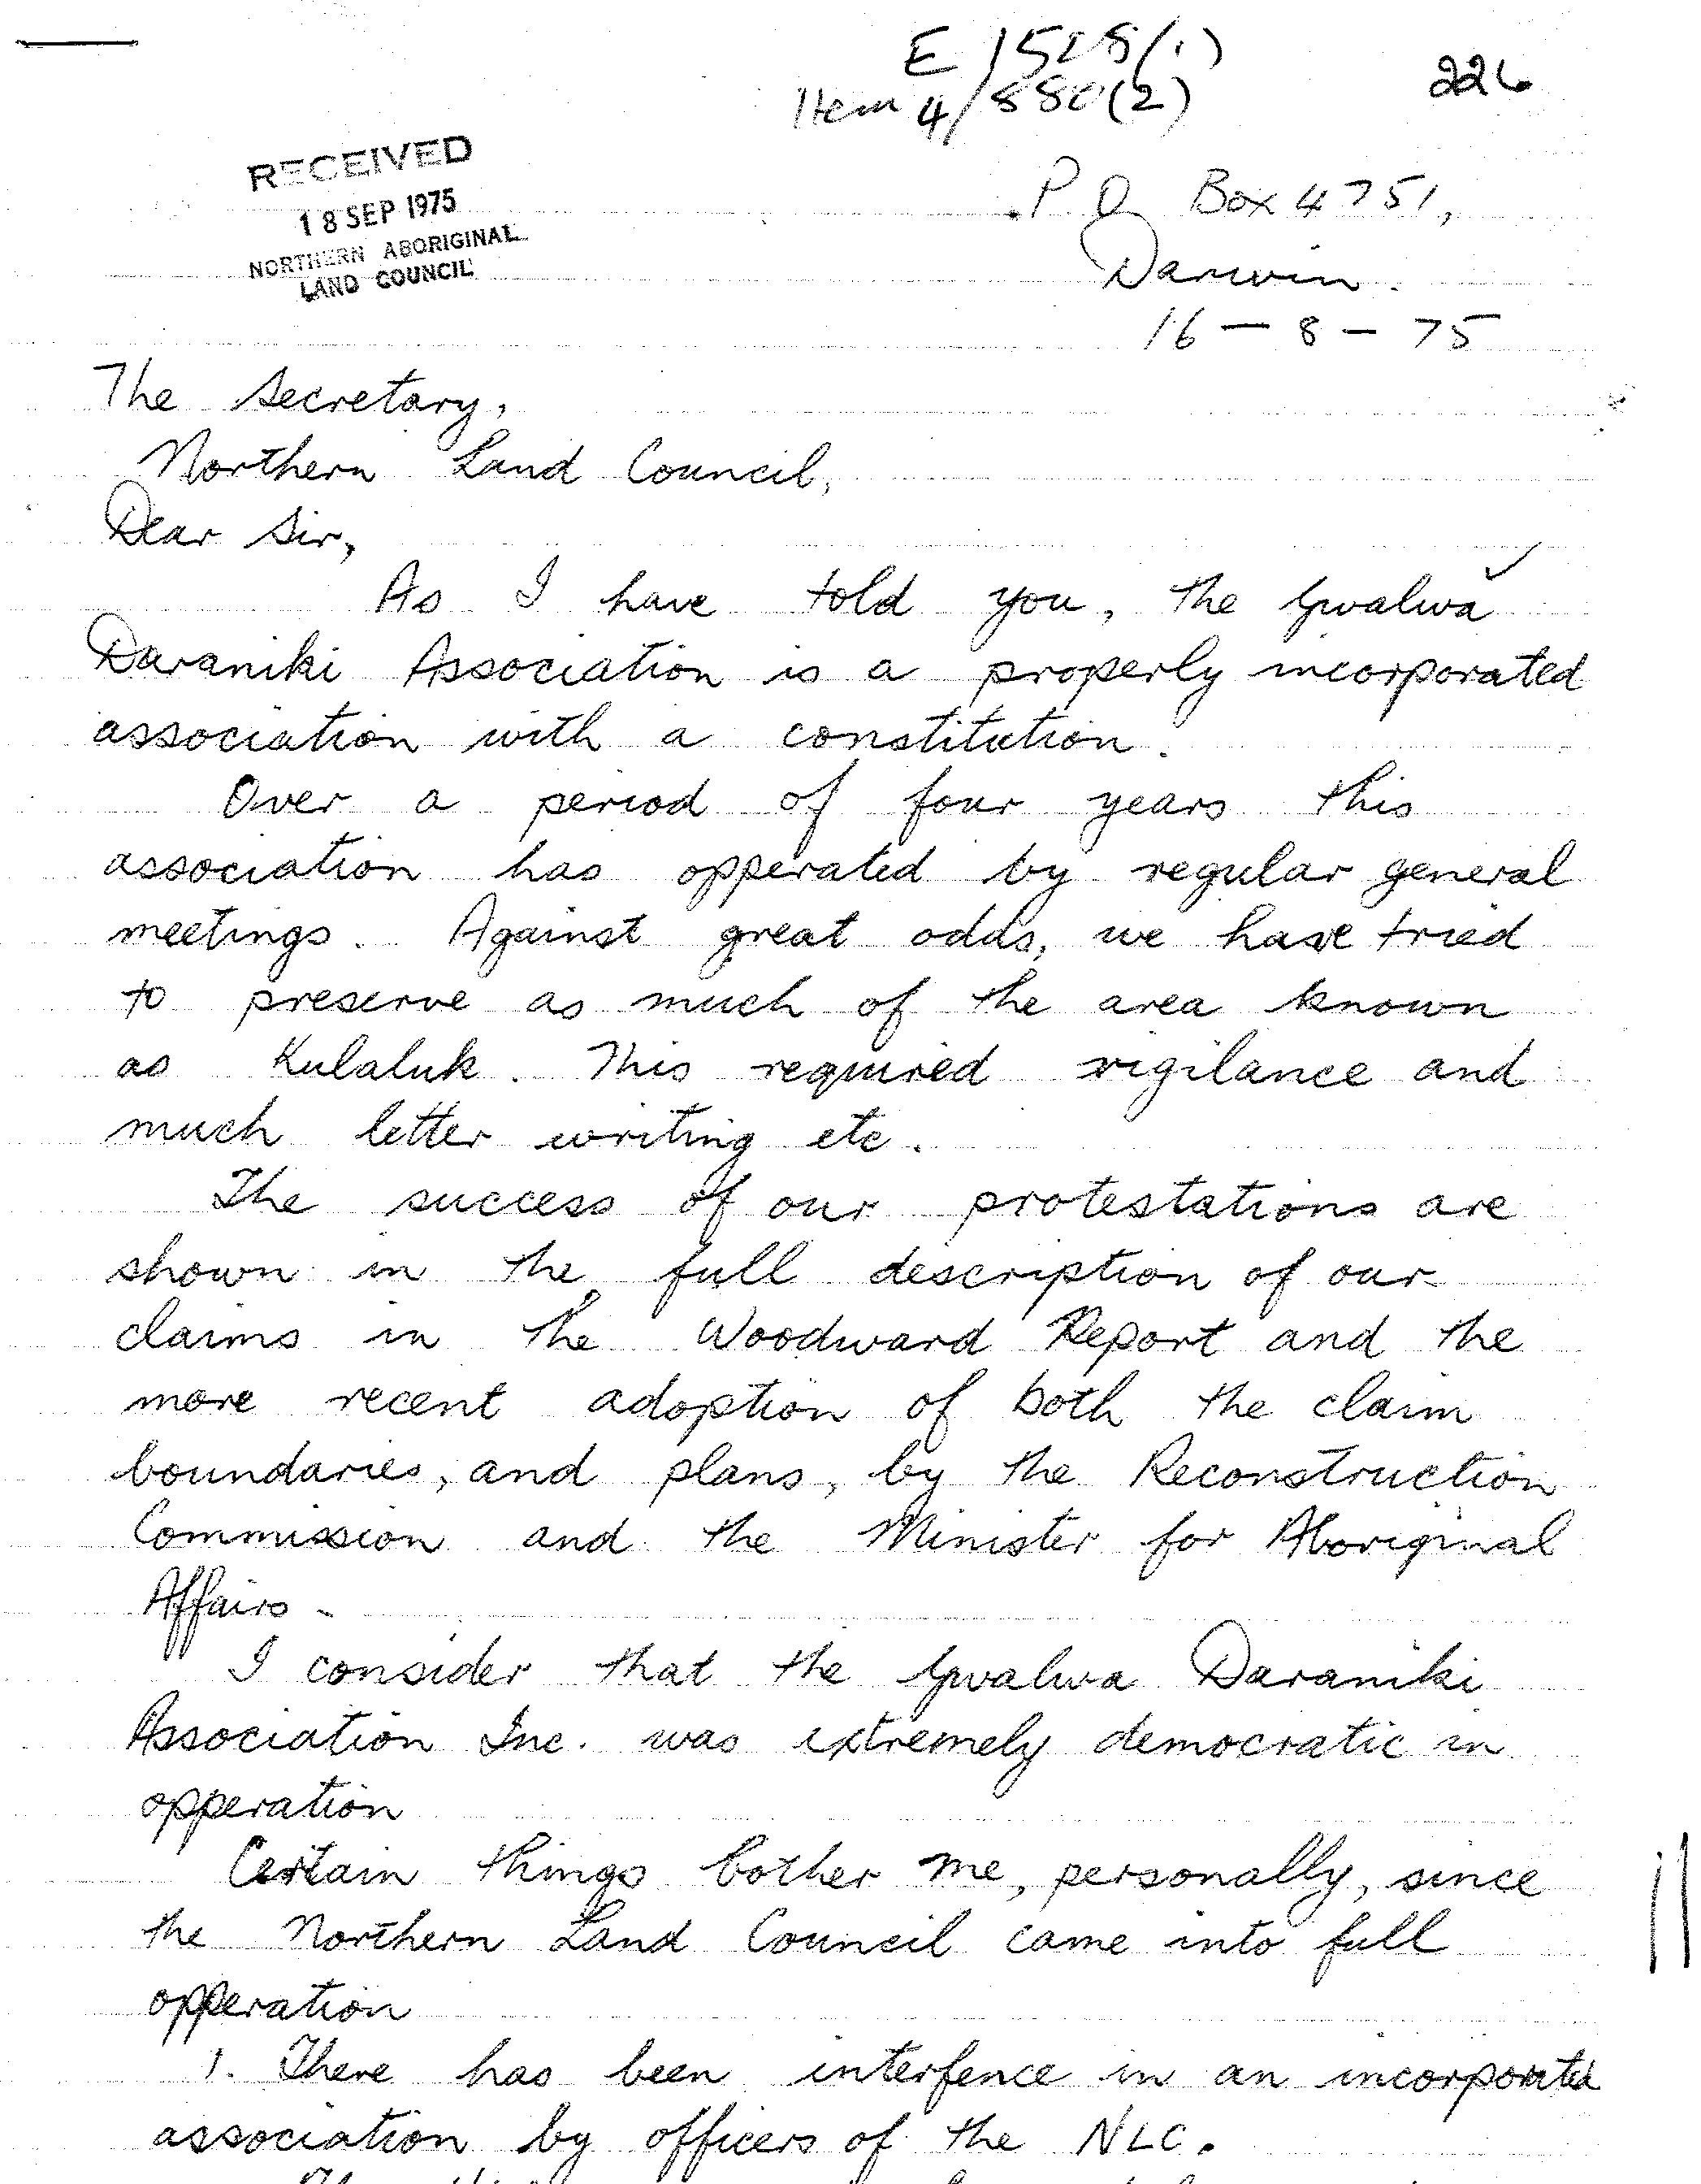 E 1528(1)
Item 4/880(2)
226
RECEIVED
18 SEP 1975
NORTHERN ABORIGINAL
LAND COUNCIL
P O Box 4751,
Darwin.
16 - 8 - 75
The Secretary,
Northern Land Council,
Dear Sir,
As I have told you, the Gwalwa
Daraniki Association is a properly incorporated
association with a constitution.
Over a period of four years this
association has opperated by regular general
meetings. Against great odds, we have tried
to preserve as much of the area known
as Kulaluk. This required vigilance and
much letter writing etc.
The success of our protestations are
shown in the full description of our
claims in the Woodward Report and the
more recent adoption of both the claim
boundaries, and plans, by the Reconstruction
Commission and the Minister for Aboriginal
Affairs.
I consider that the Gwalwa Daraniki
Association Inc. was extremely democratic in
opperation
Certain things bother me, personally, since
the Northern Land Council came into full
opperation
1. There has been interfence in an incorporated
association by officers of the NLC.